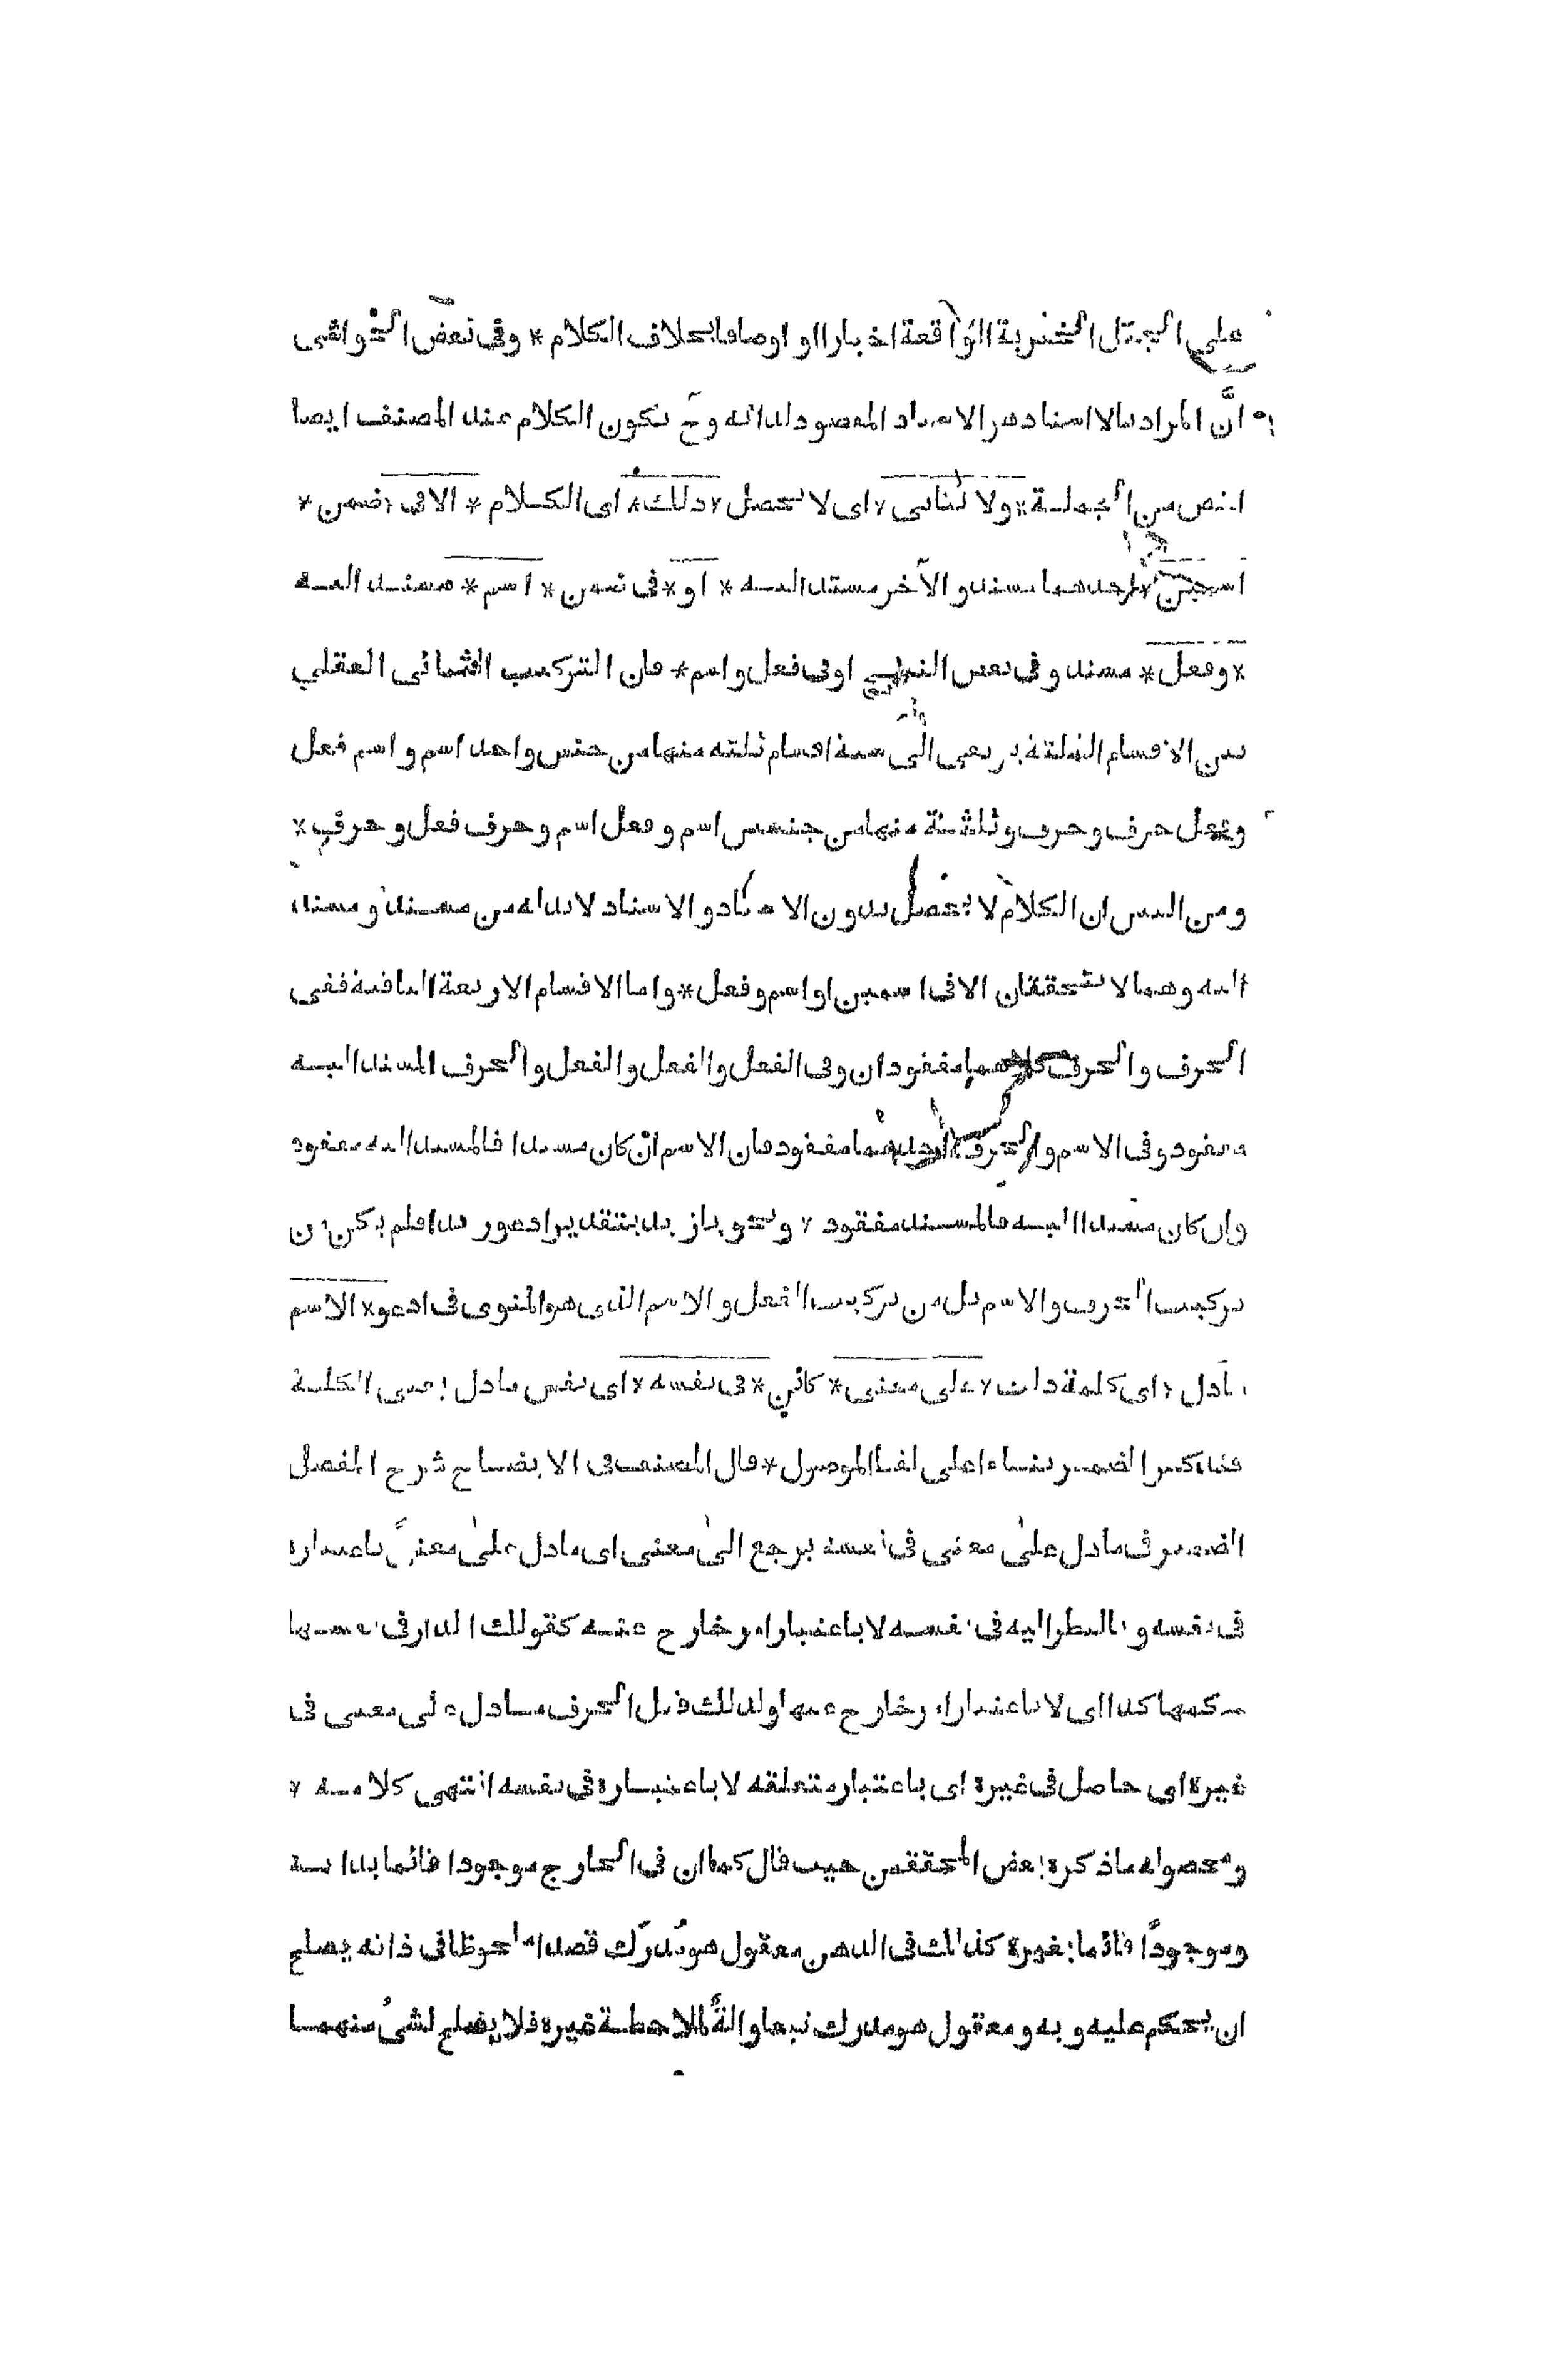 على الجمل الخبرية الواقعة اخبارا او اوصافا بخلاف الكلام * وفى بعض الحواشى
ان المراد بالاسناد هو الاسناد المقصود لذاته وح يكون الكلام عند المصنف ايضا
اخص من الجملة * ولا يتاتى * اى لا يحصل * ذلك * اى الكلام * الا فى * ضمن *
اسمين * احدهما مسند والآخر مسند اليه * او * فى ضمن * اسم * مسند اليه
* وفعل * مسند وفى بعض النسخ او فى فعل واسم * فان التركيب الثنائى العقلي
بين الاقسام الثلثة يرتقى الى ستة اقسام ثلثه منها من جنس واحد اسم و اسم فعل
وفعل حرف و حرف وثلثة منها من جنسين اسم و فعل اسم و حرف فعل و حرف *
و من البين ان الكلام لا يحصل بدون الاسناد و الاسناد لا بد له من مسند و مسند
اليه وهما لا يتحققان الا فى اسمين او اسم وفعل * واما الاقسام الاربعة الباقية ففى
الحرف و الحرف كلاهما مفقودان وفى الفعل والفعل و الفعل و الحرف المسند اليه
مفقود وفى الاسم و الحرف احدهما مفقود فان الاسم ان كان مسندا فالمسند اليه مفقود
وان كان مسندا اليه فالمسند مفقود * و نحو يا زيد بتقدير ادعو زيدا فلم يكن من
تركيب الحرف و الاسم بل من تركيب الفعل و الاسم الذى هو المنوى فى ادعو * الاسم
ما دل * اى كلمة دلت * على معنى * كائن * فى نفسه * اى نفس ما دل يعنى الكلمة
فتذكير الضمير بناء على لفظ الموصول * قال المصنف فى الايضاح شرح المفصل
الضمير فى ما دل على معنى فى نفسه يرجع الى معنى اى ما دل على معنى باعتباره
فى نفسه و بالنظر اليه فى نفسه لا باعتبار امر خارج عنه كقولك الدار فى نفسها
حكمها كذا اى لا باعتبار امر خارج عنها ولذلك قيل الحرف ما دل على معنى فى
غيره اى حاصل فى غيره اى باعتبار متعلقه لا باعتباره فى نفسه انتهى كلامه *
و محصوله ما ذكره بعض المحققين حيث قال كما ان فى الخارج موجودا قائما بذاته
وموجودا قائما بغيره كذلك فى الذهن معقول هو مدرك قصدا ملحوظا فى ذاته يصلح
ان يحكم عليه و به و معقول هو مدرك تبعا و الة لملاحظة غيره فلا يصلح لشئ منهما